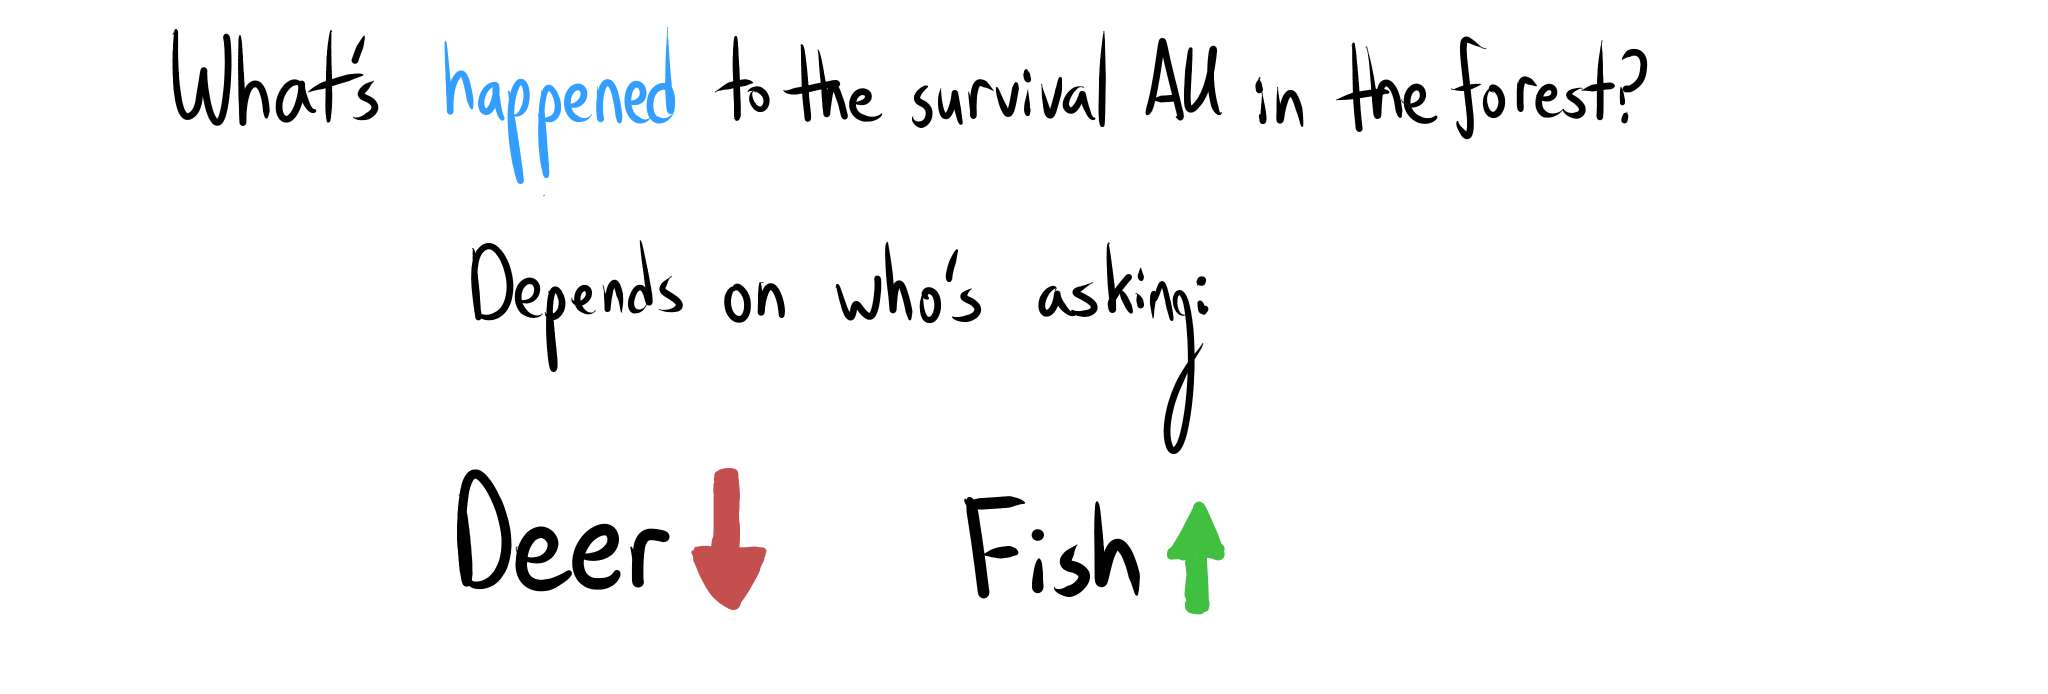 What's happened to the survival AU in the forest?
Depends on who's asking:
Deer Fish